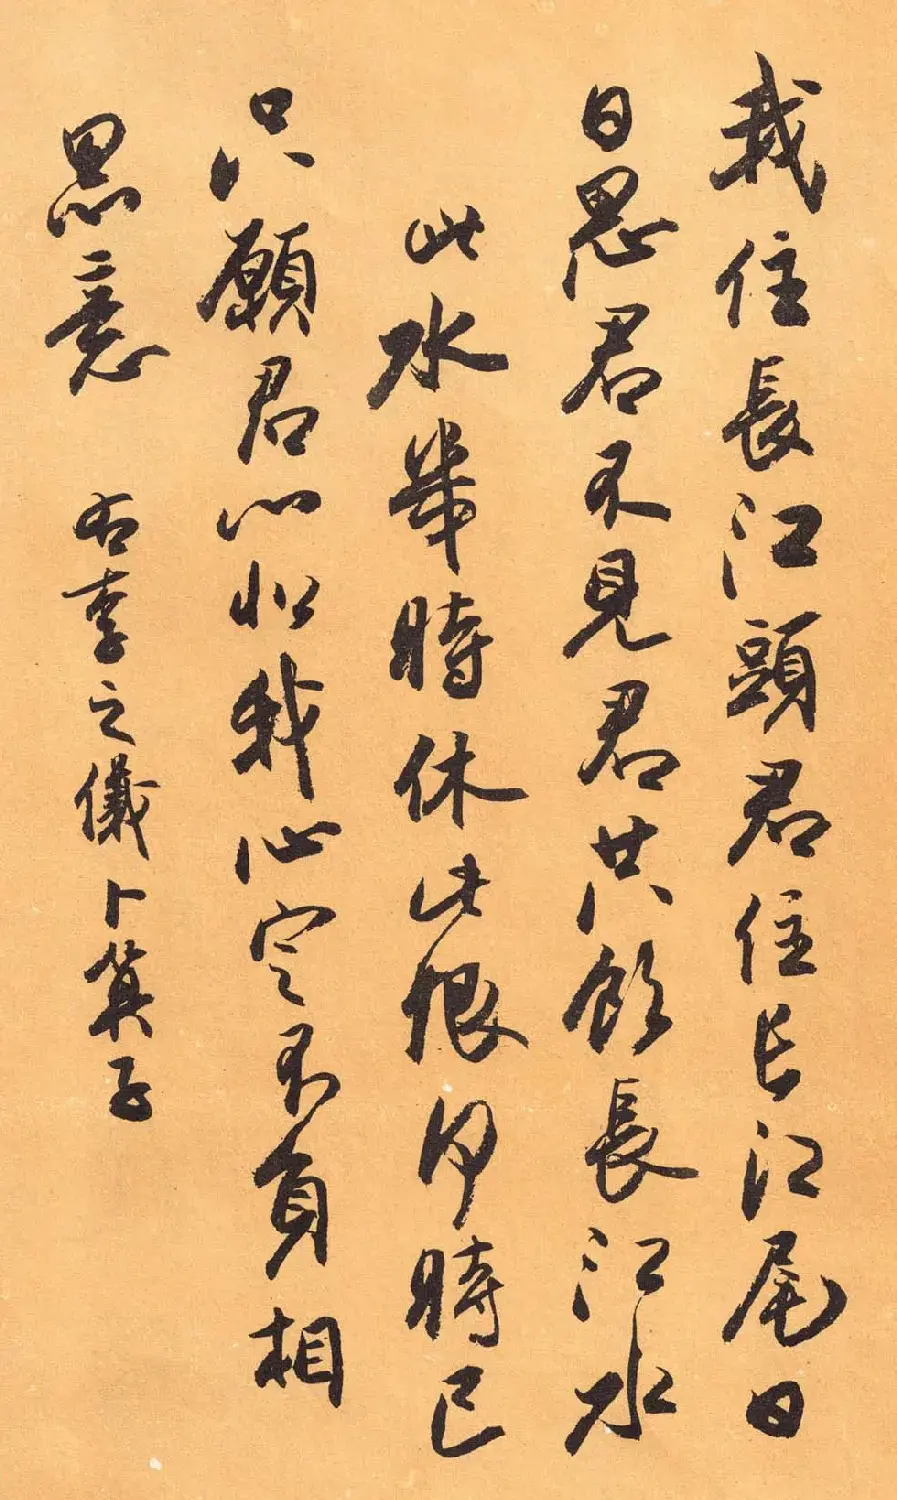 我住長江頭君住长江尾日
日思君不見君共飲長江水
此水幾時休此恨何時已
只願君心似我心定不負相
思意 右李之儀卜算子